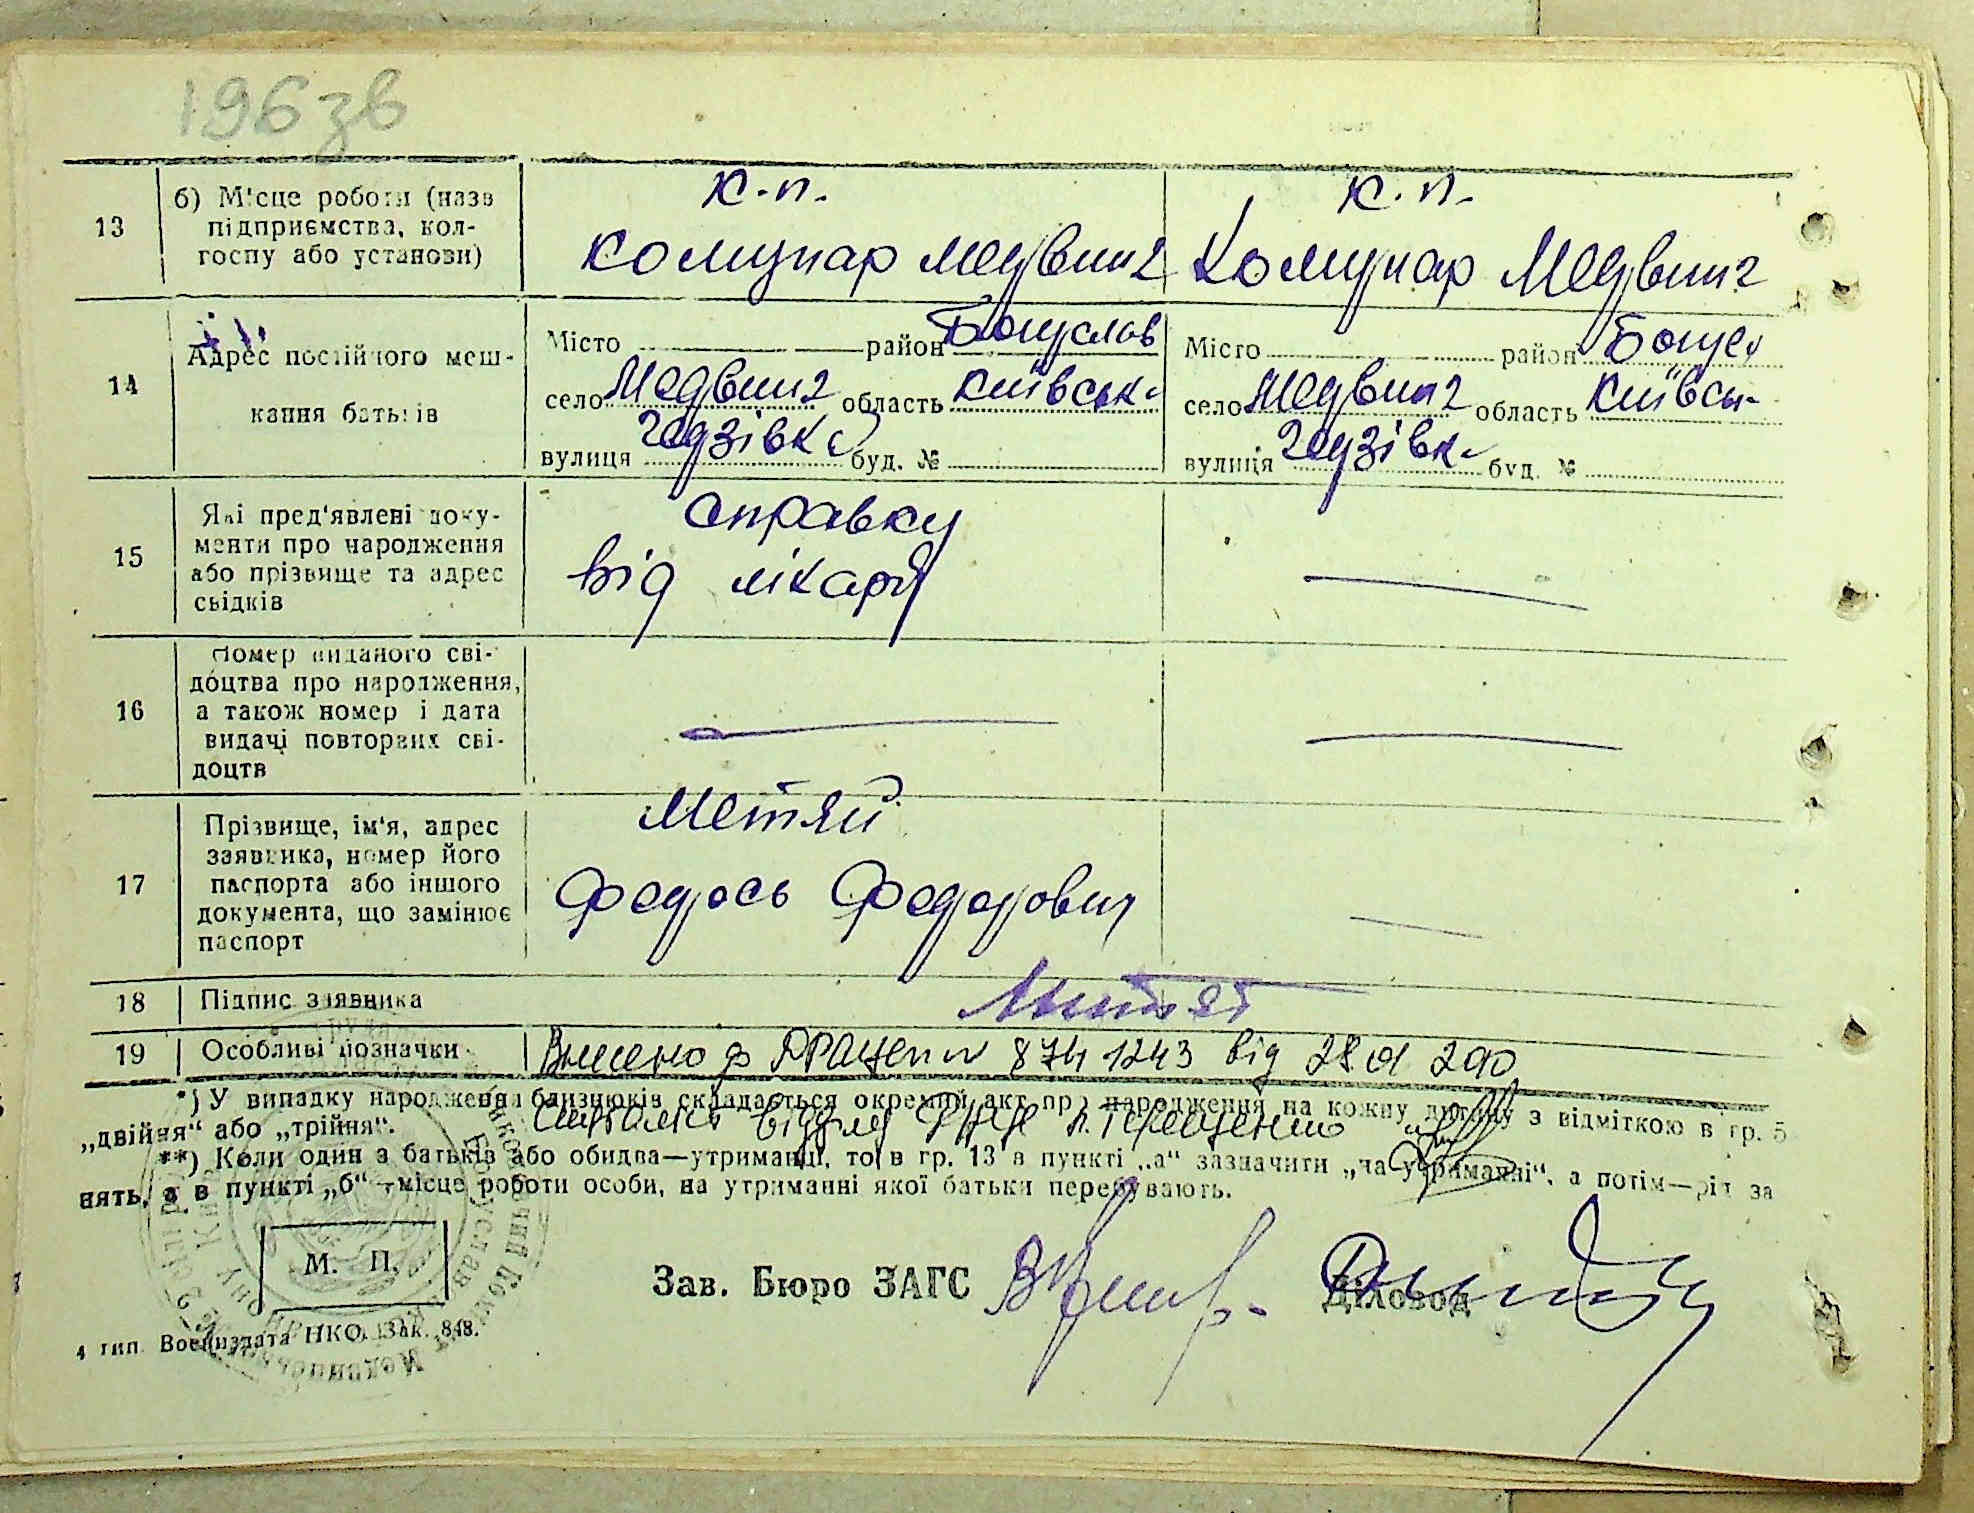 196 зв
13
б) Місце роботи (назв
підприємства, кол-
госпу або установи)
к.п.
Комунар Медвин
к.п.
Комунар Медвин
14
Адрес постійного меш-
кання батьків
Місто район Богуслав
село Медвин область Київськ
вулиця Гедзівка буд. №
Місто район Богусл
село Медвин область Київсь
вулиця Гедзівк буд. №
15
Які пред'явлені доку-
менти про народження
або прізвище та адрес
свідків
Справку
від лікаря
16
Номер виданого сві-
доцтва про народження,
а також номер і дата
видачі повторних сві-
доцтв
17
Прізвище, ім'я, адрес
заявника, номер його
паспорта або іншого
документа, що замінює
паспорт
Метяй
Федось Федорович
18 Підпис заявника
19 Особливі позначки
Внесено до ДРАЦСГ 8741243 від 28 01 2010
*) У випадку народження близнюків складається окремий акт про народження на кожну дитину з відміткою в гр. 5
„двійня“ або „трійня“.
Спеціаліст відділу ДРАЦС Л. Терещенко
**) Коли один з батьків або обидва—утриманці, то в гр. 13 в пункті „а“ зазначити „на утриманні“, а потім—рід за
нять, а в пункті „б“—місце роботи особи, на утриманні якої батьки перебувають.
М. П.
Зав. Бюро ЗАГС
Діловод
4 тип. Воениздата НКО. Зак. 848.